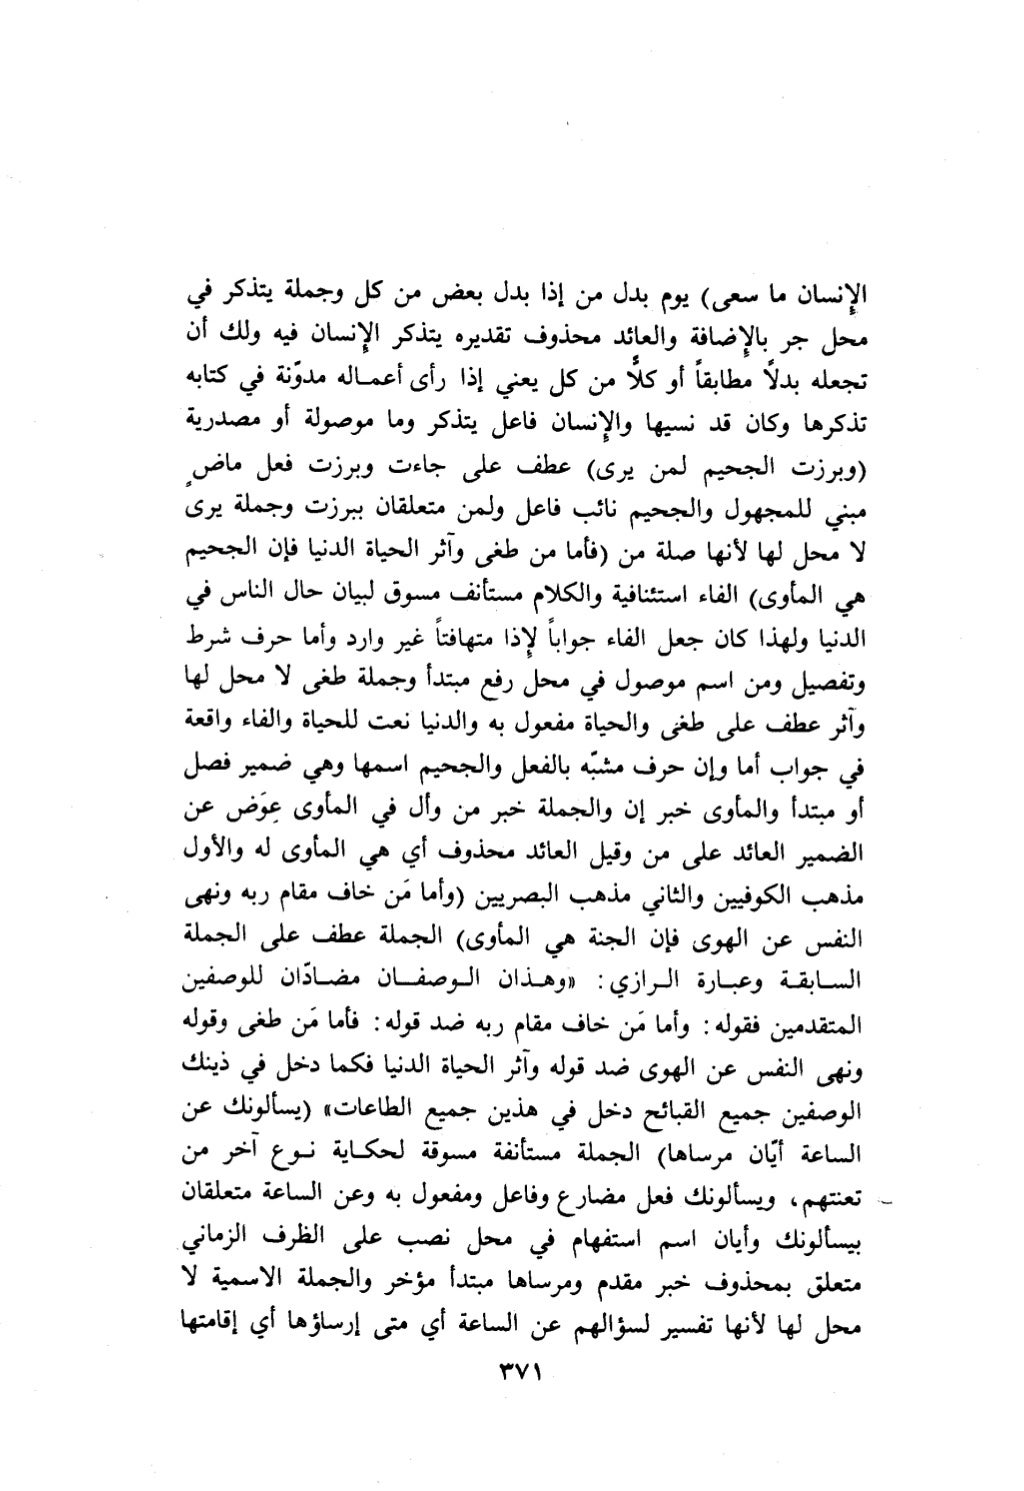 الإنسان ما سعى) يوم بدل من إذا بدل بعض من كل وجملة يتذكر في
محل جر بالإضافة والعائد محذوف تقديره يتذكر الإنسان فيه ولك أن
تجعله بدلًا مطابقاً أو كلًّا من كل يعني إذا رأى أعماله مدوّنة في كتابه
تذكرها وكان قد نسيها والإنسان فاعل يتذكر وما موصولة أو مصدرية
(وبرزت الجحيم لمن يرى) عطف على جاءت وبرزت فعل ماضٍ
مبني للمجهول والجحيم نائب فاعل ولمن متعلقان ببرزت وجملة يرى
لا محل لها لأنها صلة من (فأما من طغى وآثر الحياة الدنيا فإن الجحيم
هي المأوى) الفاء استئنافية والكلام مستأنف مسوق لبيان حال الناس في
الدنيا ولهذا كان جعل الفاء جواباً لإذا متهافتاً غير وارد وأما حرف شرط
وتفصيل ومن اسم موصول في محل رفع مبتدأ وجملة طغى لا محل لها
وآثر عطف على طغى والحياة مفعول به والدنيا نعت للحياة والفاء واقعة
في جواب أما وإن حرف مشبّه بالفعل والجحيم اسمها وهي ضمير فصل
أو مبتدأ والمأوى خبر إن والجملة خبر من وأل في المأوى عِوَض عن
الضمير العائد على من وقيل العائد محذوف أي هي المأوى له والأول
مذهب الكوفيين والثاني مذهب البصريين (وأما مَن خاف مقام ربه ونهى
النفس عن الهوى فإن الجنة هي المأوى) الجملة عطف على الجملة
السابقة وعبارة الرازي: «وهذان الوصفان مضادّان للوصفين
المتقدمين فقوله: وأما مَن خاف مقام ربه ضد قوله: فأما مَن طغى وقوله
ونهى النفس عن الهوى ضد قوله وآثر الحياة الدنيا فكما دخل في ذينك
الوصفين جميع القبائح دخل في هذين جميع الطاعات» (يسألونك عن
الساعة أيّان مرساها) الجملة مستأنفة مسوقة لحكاية نوع آخر من
تعنتهم، ويسألونك فعل مضارع وفاعل ومفعول به وعن الساعة متعلقان
بيسألونك وأيان اسم استفهام في محل نصب على الظرف الزماني
متعلق بمحذوف خبر مقدم ومرساها مبتدأ مؤخر والجملة الاسمية لا
محل لها لأنها تفسير لسؤالهم عن الساعة أي متى إرساؤها أي إقامتها
٣٧١